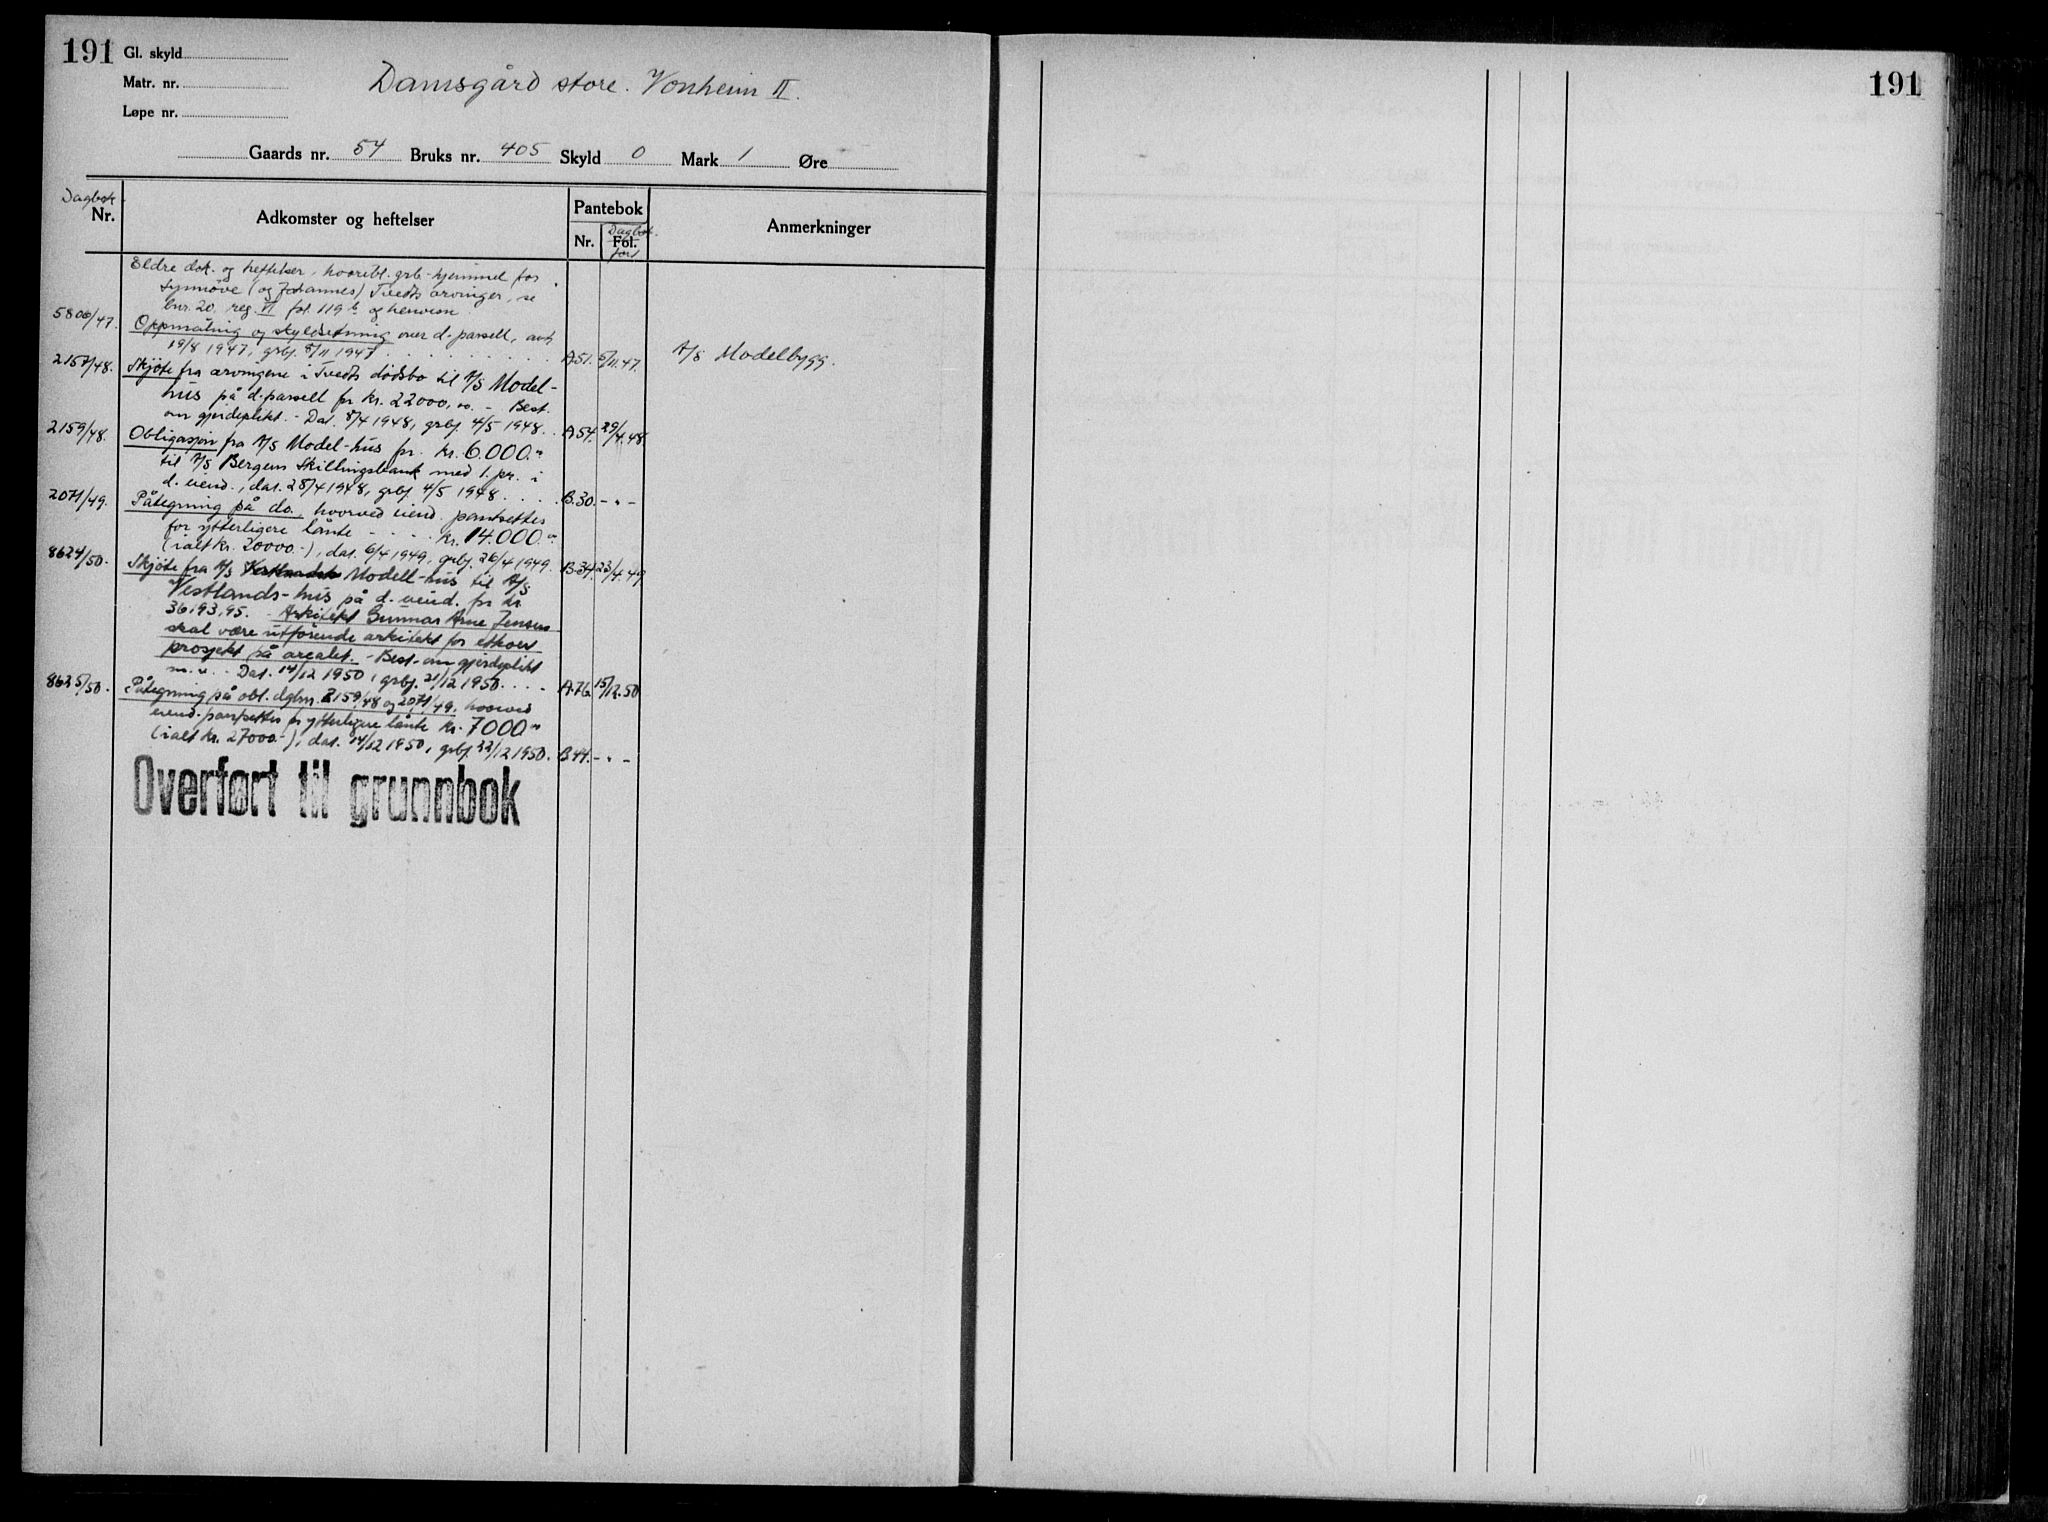 191
Gl. skyld
Matr. nr.
Løpe nr.
Damsgård store. Vonheim II.
Gaards nr. 54 Bruks nr. 405 Skyld 0 Mark 1 Øre
Dagbok Nr.
Adkomster og heftelser
Pantebok
Nr.
Fol.
Dagbok ført
Anmerkninger
Eldre dok. og heftelser, hvoribl. grb-hjemmel for
Synnöve (og Johannes) Tvedts arvinger, se
bnr. 20. reg. VI fol. 119 b og henvisn.
5806/47. Oppmåling og skyldsetning over d. parsell, avh.
19/8 1947, grbf. 8/11 1947 A.51. 5/11.47.
A/S Modelbygg.
2157/48. Skjöte fra arvingene i Tvedts dödsbo til A/S Model-
hus på d. parsell for kr. 22000,00. - Best.
om gjerdeplikt. - Dat. 8/4 1948, grbf. 4/5 1948. A.54. 29/4.48
2159/48. Obligasjon fra A/S Model-hus for kr. 6.000.-
til A/S Bergens Skillingsbank med 1. pr. i
d. eiend., dat. 28/4 1948, grbf. 4/5 1948 . . . . B.30. - " -
2071/49. Påtegning på do., hvorved eiend. pantsettes
for ytterligere lånte - - - - kr. 14.000.-
(ialt kr. 20000.-), dat. 6/4 1949, grbf. 26/4 1949. B.34. 23/4.49
8624/50. Skjöte fra A/S Modell-hus til A/S
Vestlands-hus på d. eiend. for kr.
36193,95. - Arkitekt Gunnar Arne Jensen
skal være utförende arkitekt for ethvert
prosjekt på arealet. - Best. om gjerdeplikt
m.v. - Dat. 14/12 1950, grbf. 21/12 1950. . . . A.76. 15/12.50
8625/50. Påtegning på obl. dgbnr. 2159/48 og 2071/49, hvorved
eiend. pantsettes for ytterligere lånte kr. 7000.-
(ialt kr. 27000.-), dat. 14/12 1950, grbf. 22/12 1950. B.44. - " -
Overført til grunnbok
191